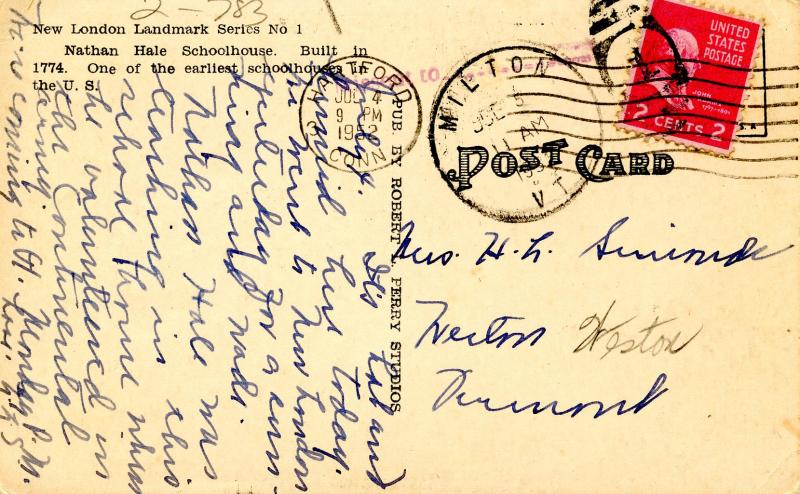 2-783
New London Landmark Series No 1
Nathan Hale Schoolhouse. Built in
1774. One of the earliest schoolhouses in
the U. S.
HARTFORD
JUL 4
9 PM
1952
CONN
MILTON
JUL 5
11 AM
VT
UNITED
STATES
POSTAGE
JOHN
2 CENTS 2
POST CARD
PUB BY ROBERT L. PERRY STUDIOS
Mrs. H. L. Simonds
Weston Weston
Vermont
July 4.
It's hot and
humid here today.
We went to New London
yesterday for a sun-
ning and wade.
Nathan Hale was
teaching in this
school house when
he volunteered in
the Continental
army.
coming to Vt. Monday P.M.
Love,